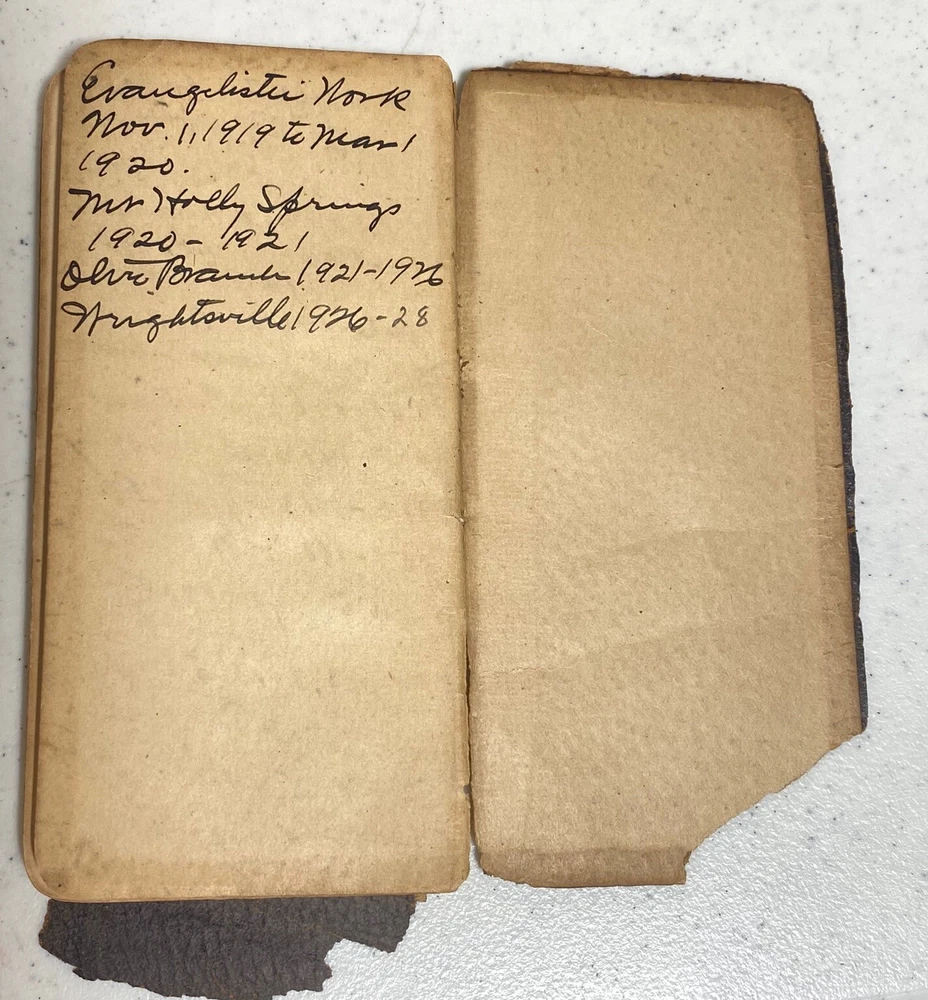 Evangelistic Work
Nov. 1, 1919 to Mar 1
1920.
Mt Holly Springs
1920 - 1921
Olive Branch 1921-1926
Wrightsville 1926-28